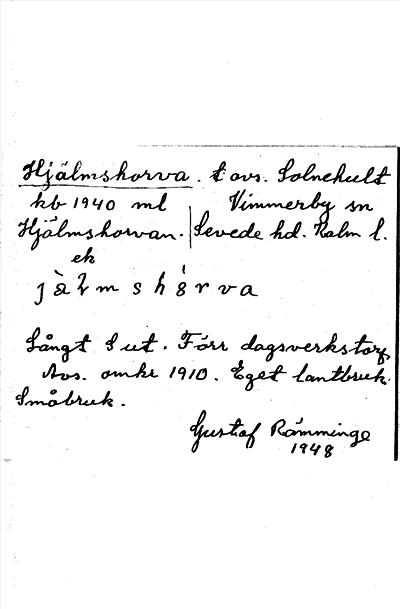 Hjälmshorva. t avs. Solnehult
kb 1940 ml Vimmerby sn
Hjälmshorvan. Sevede hd. Kalm l.
ek
jàlmshórva
Långt S ut. Förr dagsverkstorp
Avs. omkr 1910. Eget lantbruk.
Småbruk.
Gustaf Rämminge
1948